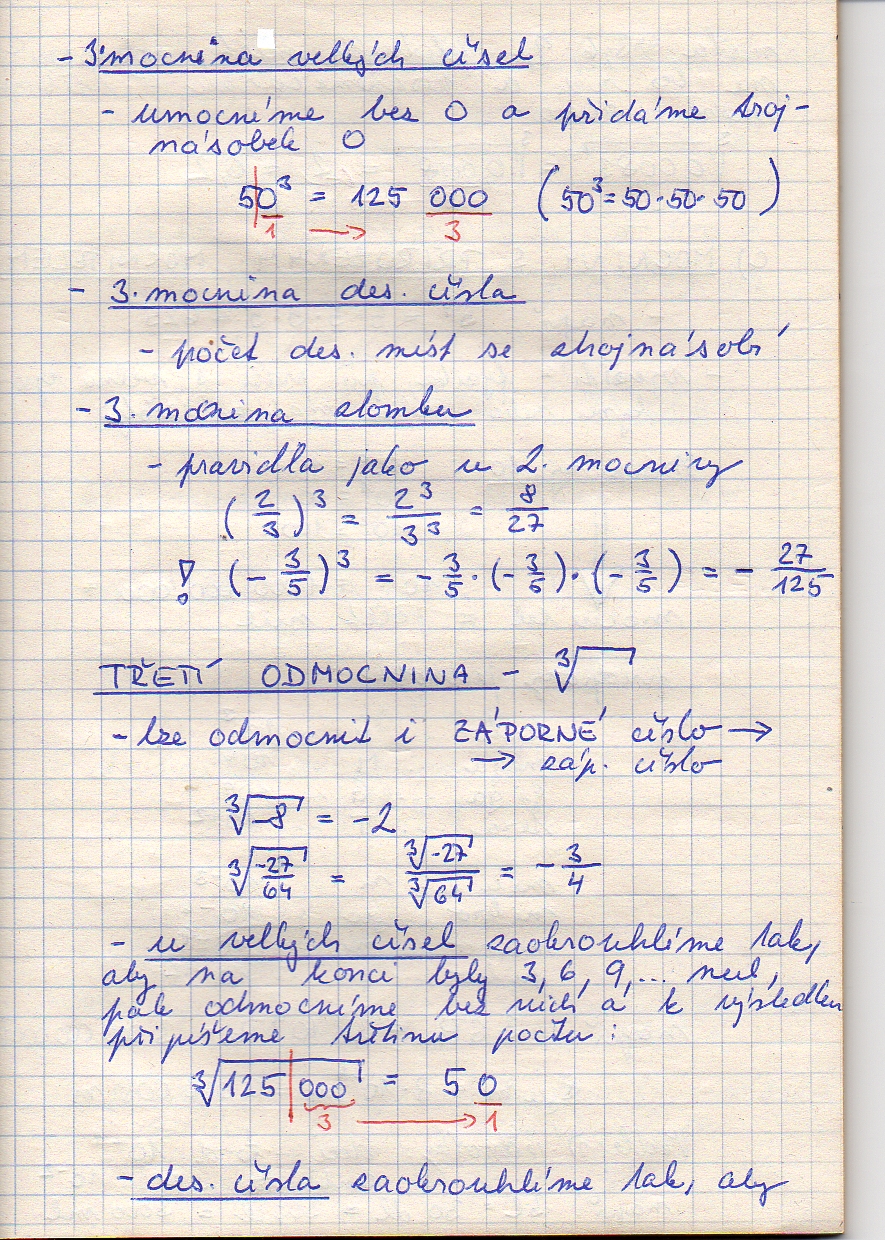 - 3. mocnina velkých čísel
- umocníme bez 0 a přidáme troj-
násobek 0
50³ = 125 000 (50³ = 50·50·50)
1 → 3
- 3. mocnina des. čísla
- počet des. míst se ztrojnásobí
- 3. mocnina zlomku
- pravidla jako u 2. mocniny
(2/3)³ = 2³/3³ = 8/27
! (-3/5)³ = -3/5·(-3/5)·(-3/5) = -27/125
TŘETÍ ODMOCNINA - ∛
- lze odmocnit i ZÁPORNÉ číslo →
→ záp. číslo
∛-8 = -2
∛(-27/64) = ∛-27/∛64 = -3/4
- u velkých čísel zaokrouhlíme tak,
aby na konci byly 3, 6, 9,... nul,
pak odmocníme bez nich a k výsledku
připíšeme třetinu počtu:
∛125 000 = 50
3 → 1
- des. čísla zaokrouhlíme tak, aby